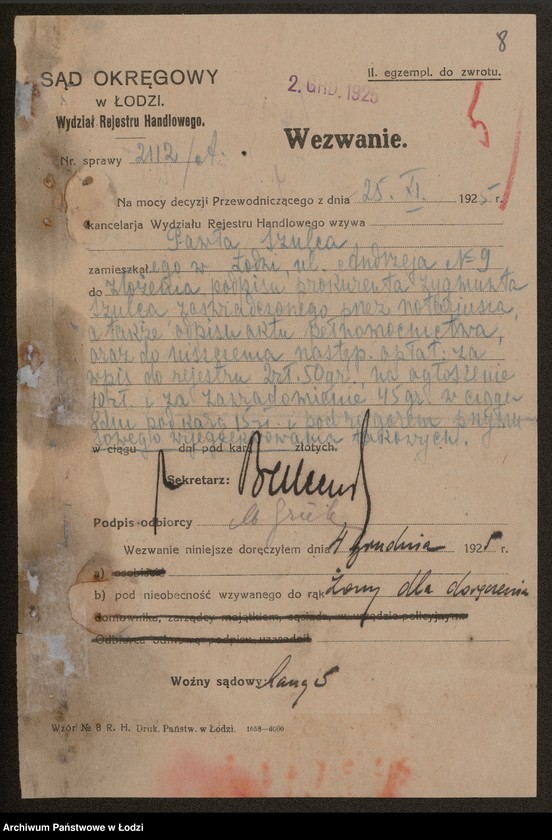 8
SĄD OKRĘGOWY
w ŁODZI.
Wydział Rejestru Handlowego.
II. egzempl. do zwrotu.
2. GRD. 1925
5
Wezwanie.
Nr. sprawy 2112/A
Na mocy decyzji Przewodniczącego z dnia 25. XI. 1925 r.
kancelarja Wydziału Rejestru Handlowego wzywa
Pawła Szulca
zamieszkał.ego w Łodzi, ul. Andrzeja № 9
do złożenia podpisu prokurenta Zygmunta
Szulca zaświadczonego przez notarjusza,
a także odpisu aktu pełnomocnictwa,
oraz do uiszczenia następ. opłat: za
wpis do rejestru 2 zł. 50 gr., na ogłoszenie
10 zł. i za zawiadomienie 45 gr. w ciągu
8 dni pod karą 15 zł. i pod rygorem przymu-
sowego wyegzekwowania takowych.
w ciągu dni pod karą złotych.
Sekretarz:
Podpis odbiorcy
Wezwanie niniejsze doręczyłem dnia 4 grudnia 1925 r.
a) osobiście
b) pod nieobecność wzywanego do rąk żony dla doręczenia
domownika, zarządcy majątkiem, sąsiada, w urzędzie policyjnym
Odbiorca odmówił podpisu uzasadnił
Woźny sądowy:
Wzór № 8 R. H. Druk. Państw. w Łodzi. 1658—6000
Archiwum Państwowe w Łodzi